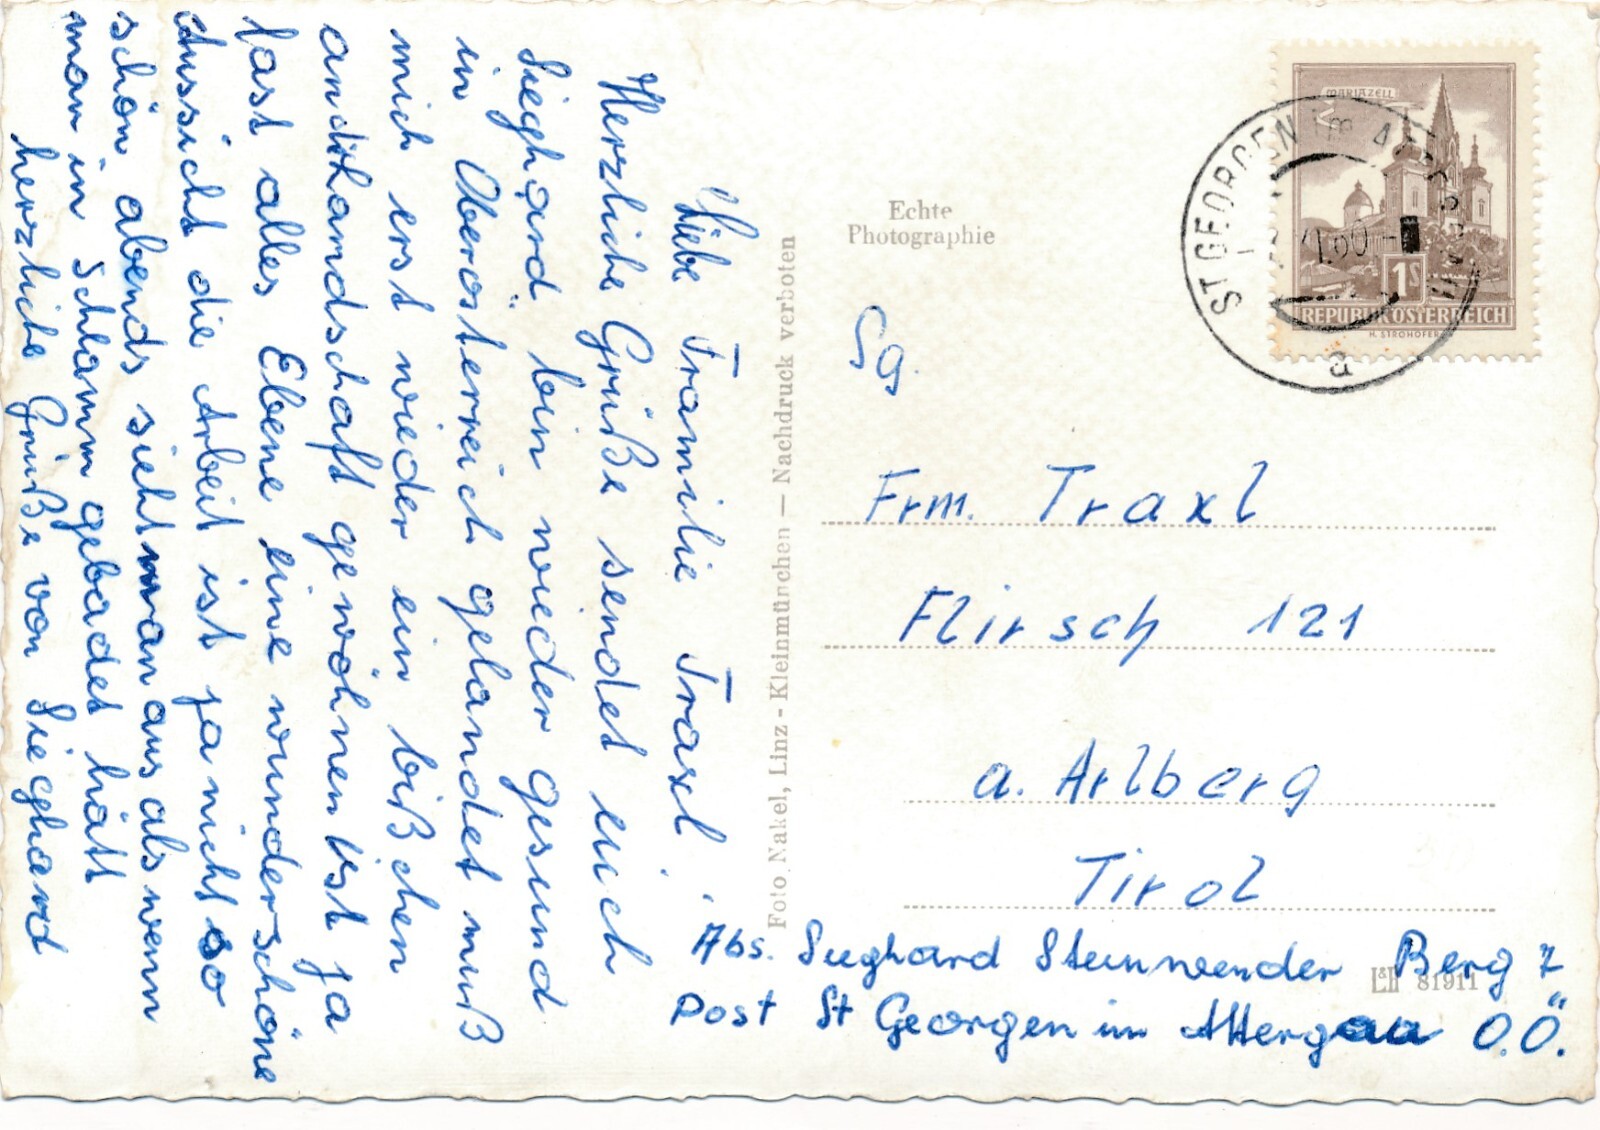 Liebe Framilie Traxl!
Herzliche Grüße sendet euch
Sieghard, bin wieder gesund
in Oberösterreich gelandet muß
mich erst wieder ein bißchen
an Landschaft gewöhnen ist ja
fast alles Ebene eine wunderschöne
Aussicht die Arbeit ist ja nicht so
schön abends sieht man aus als wenn
man in Schlamm gebadet hätt
herzliche Grüße von Sieghard
Foto Nakel, Linz - Kleinmünchen — Nachdruck verboten
Echte
Photographie
MARIAZELL
1S
REPUBLIK ÖSTERREICH
H. STROHOFER
ST GEORGEN im
60
a
Frm. Traxl
Flirsch 121
a. Arlberg
Tirol
Abs. Sieghard Steinwender Berg 7
Post St Georgen im Attergau O.Ö.
81911